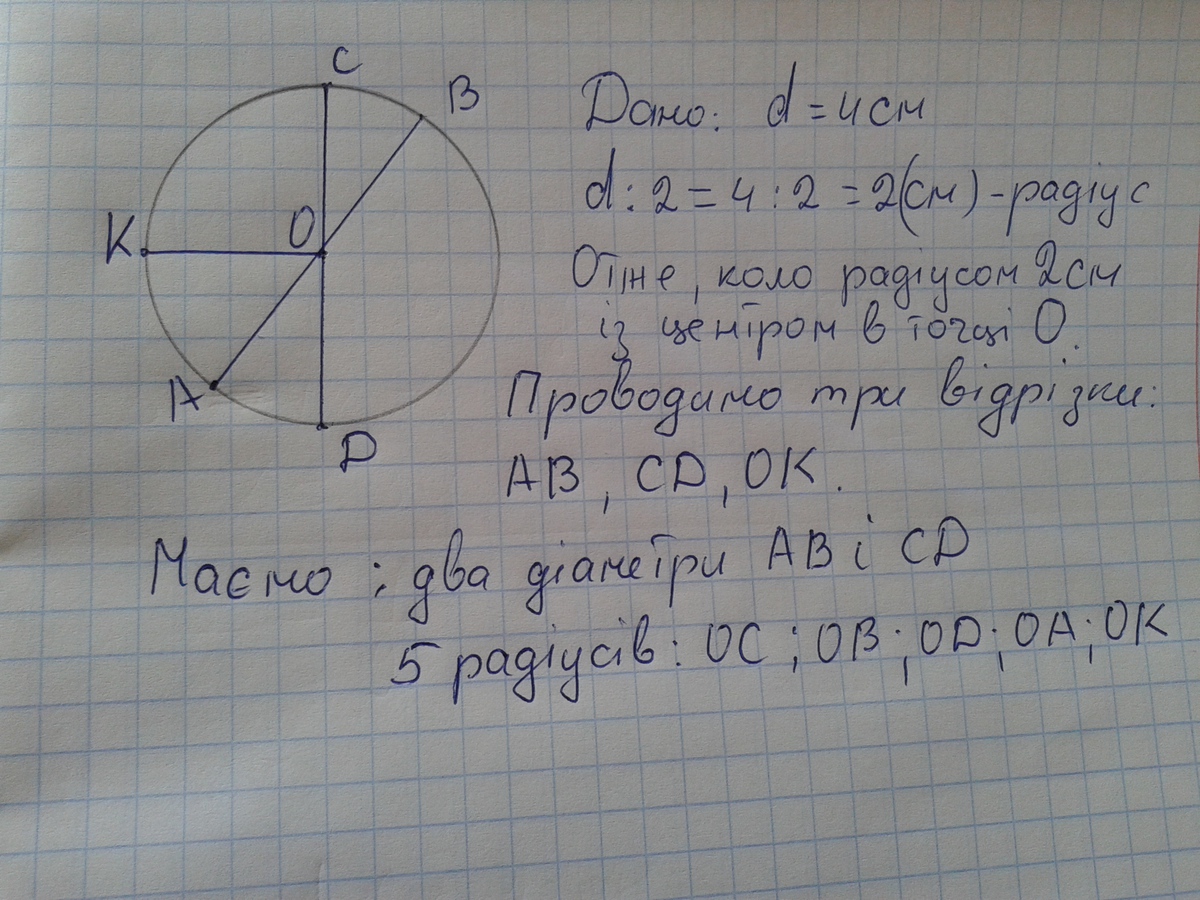 C
B
K
O
A
D
Дано: d = 4 см
d : 2 = 4 : 2 = 2(см) - радіус
Отже, коло радіусом 2 см
із центром в точці О.
Проводимо три відрізки:
AB, CD, OK.
Маємо : два діаметри AB і CD
5 радіусів: OC ; OB ; OD; OA; OK